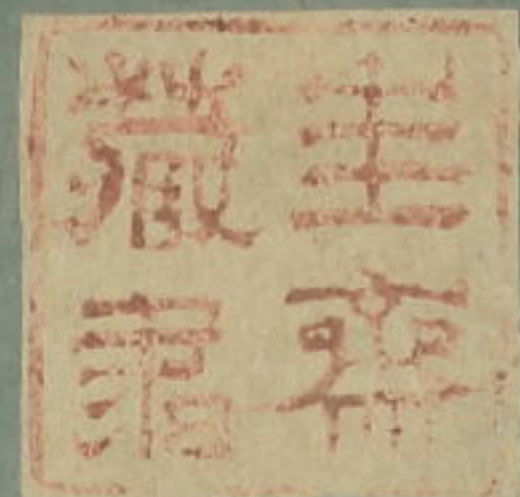 圭齋
藏書